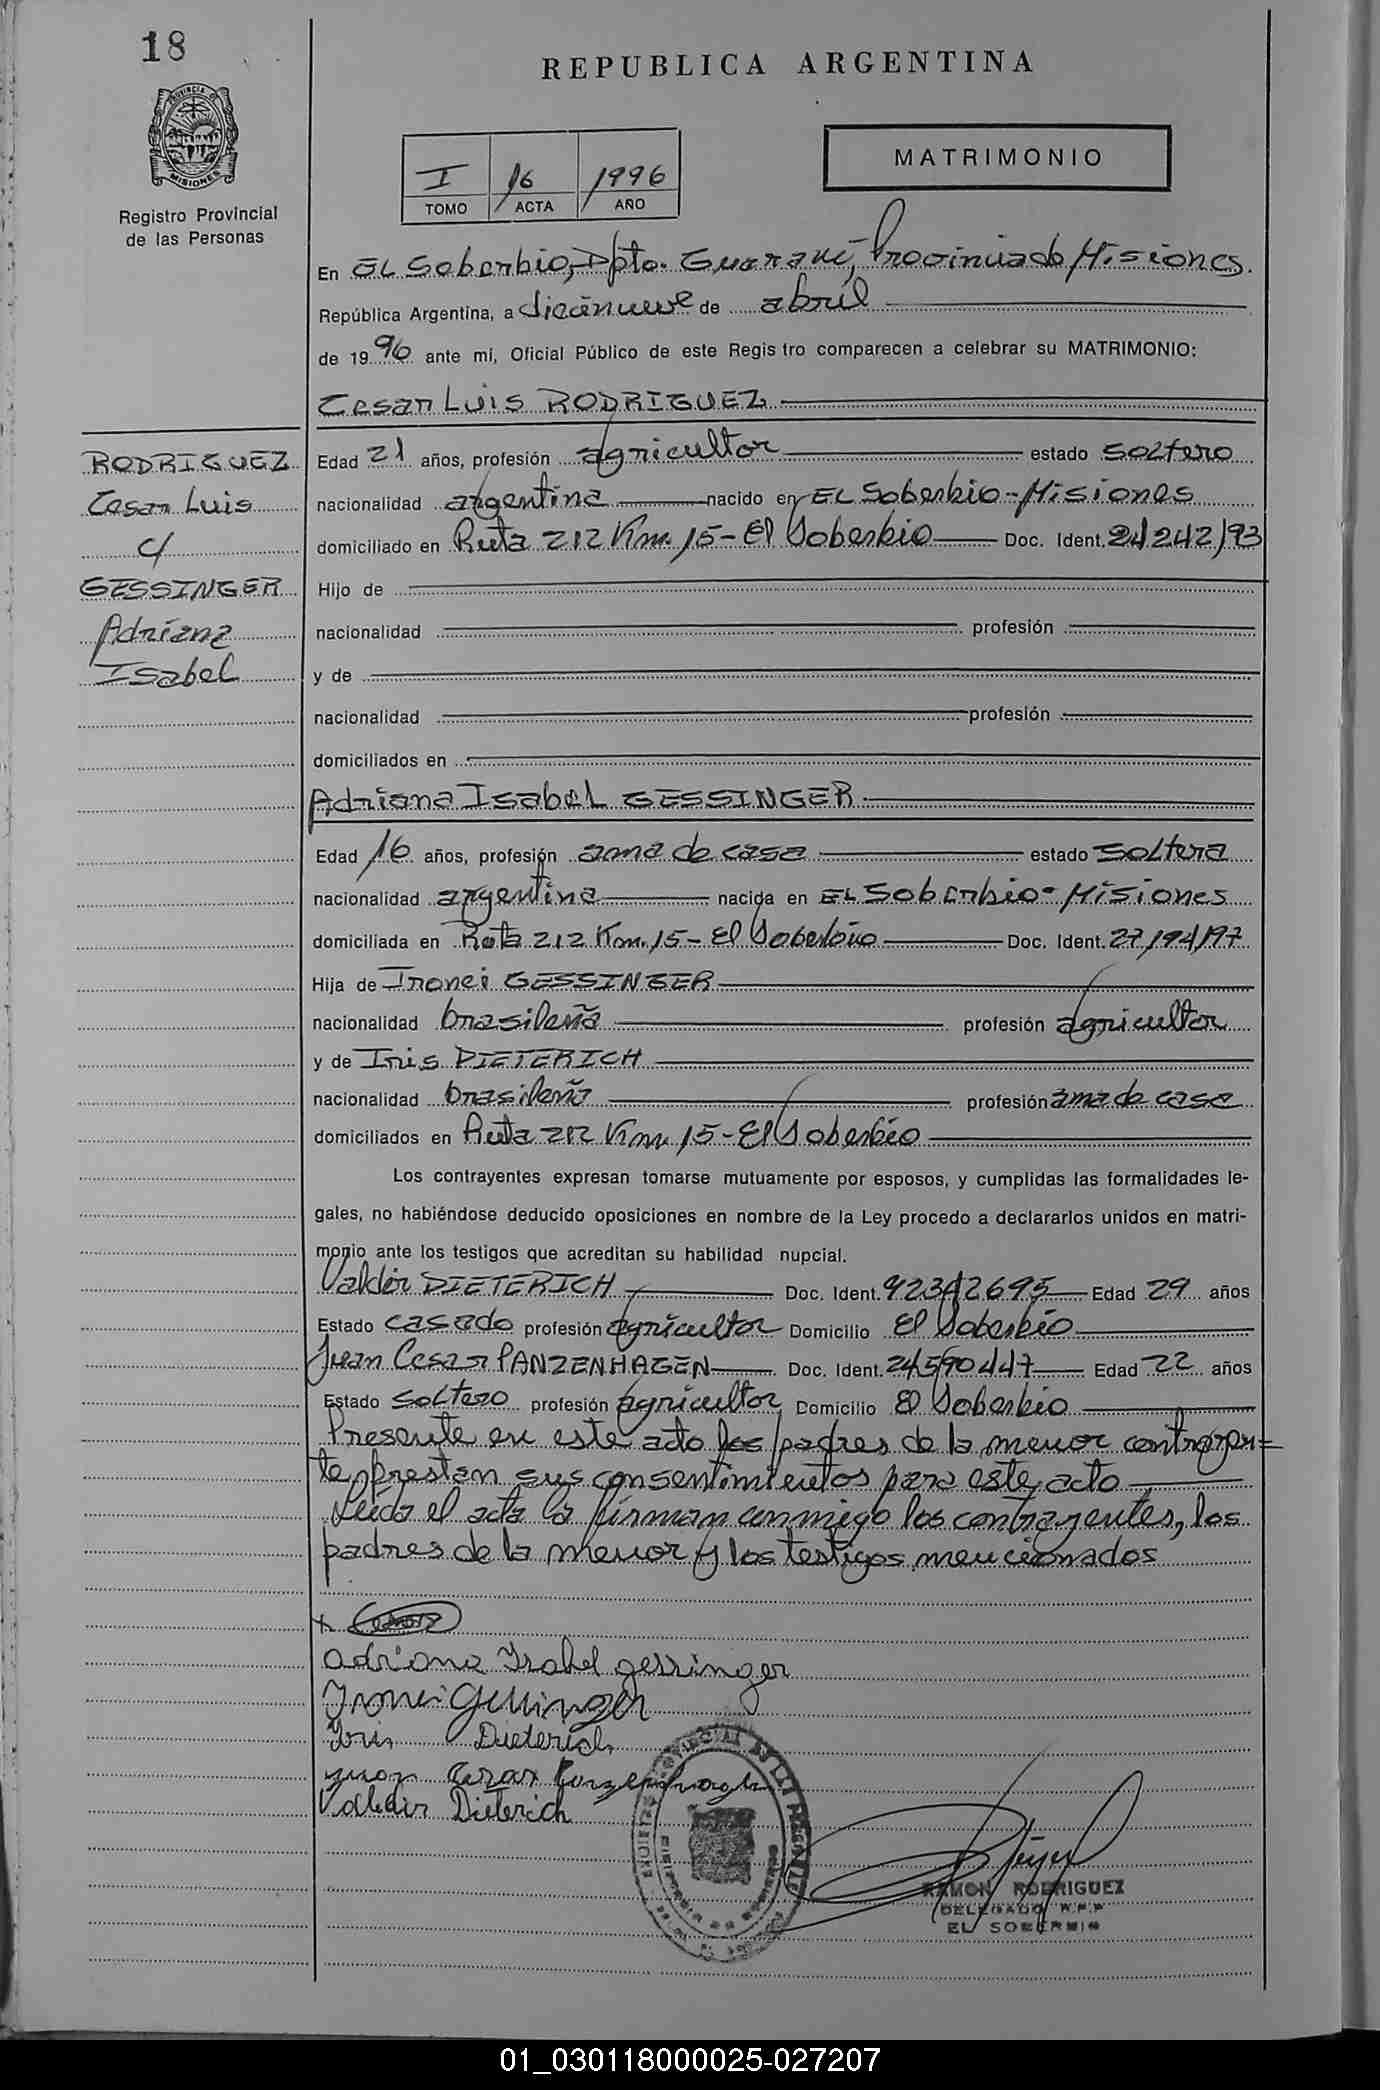 18
REPUBLICA ARGENTINA
PROVINCIA DE
MISIONES
Registro Provincial
de las Personas
I 16 1996
TOMO ACTA AÑO
MATRIMONIO
En EL Soberbio, Dpto. Guaraní, Provincia de Misiones.
República Argentina, a diecinueve de abril
de 1996 ante mi, Oficial Público de este Registro comparecen a celebrar su MATRIMONIO:
Cesar Luis RODRIGUEZ
RODRIGUEZ
Cesar Luis
c/
GESSINGER
Adriana
Isabel
Edad 21 años, profesión agricultor estado soltero
nacionalidad argentina nacido en EL Soberbio - Misiones
domiciliado en Ruta 212 Km. 15 - El Soberbio Doc. Ident. 24242193
Hijo de
nacionalidad profesión
y de
nacionalidad profesión
domiciliados en
Adriana Isabel GESSINGER
Edad 16 años, profesión ama de casa estado soltera
nacionalidad argentina nacida en EL Soberbio - Misiones
domiciliada en Ruta 212 Km. 15 - El Soberbio Doc. Ident.
Hija de Ironei GESSINGER
nacionalidad brasileña profesión agricultor
y de Iris DIETERICH
nacionalidad brasileña profesión ama de casa
domiciliados en Ruta 212 Km. 15 - El Soberbio
Los contrayentes expresan tomarse mutuamente por esposos, y cumplidas las formalidades le-
gales, no habiéndose deducido oposiciones en nombre de la Ley procedo a declararlos unidos en matri-
monio ante los testigos que acreditan su habilidad nupcial.
Valdir DIETERICH Doc. Ident. 92342695 Edad 29 años
Estado casado profesión agricultor Domicilio El Soberbio
Juan Cesar PANZENHAGEN Doc. Ident. 24590447 Edad 22 años
Estado soltero profesión agricultor Domicilio El Soberbio
Presente en este acto los padres de la menor contrayen=
te prestan sus consentimientos para este acto
Leída el acta la firman conmigo los contrayentes, los
padres de la menor y los testigos mencionados
x
Adriana Isabel gessinger
Ironei Gessinger
Iris Dieterich
Juan Cesar Panzenhagen
Valdir Dieterich
RAMON RODRIGUEZ
DELEGADO R.P.P
EL SOBERBIO
01_030118000025-027207